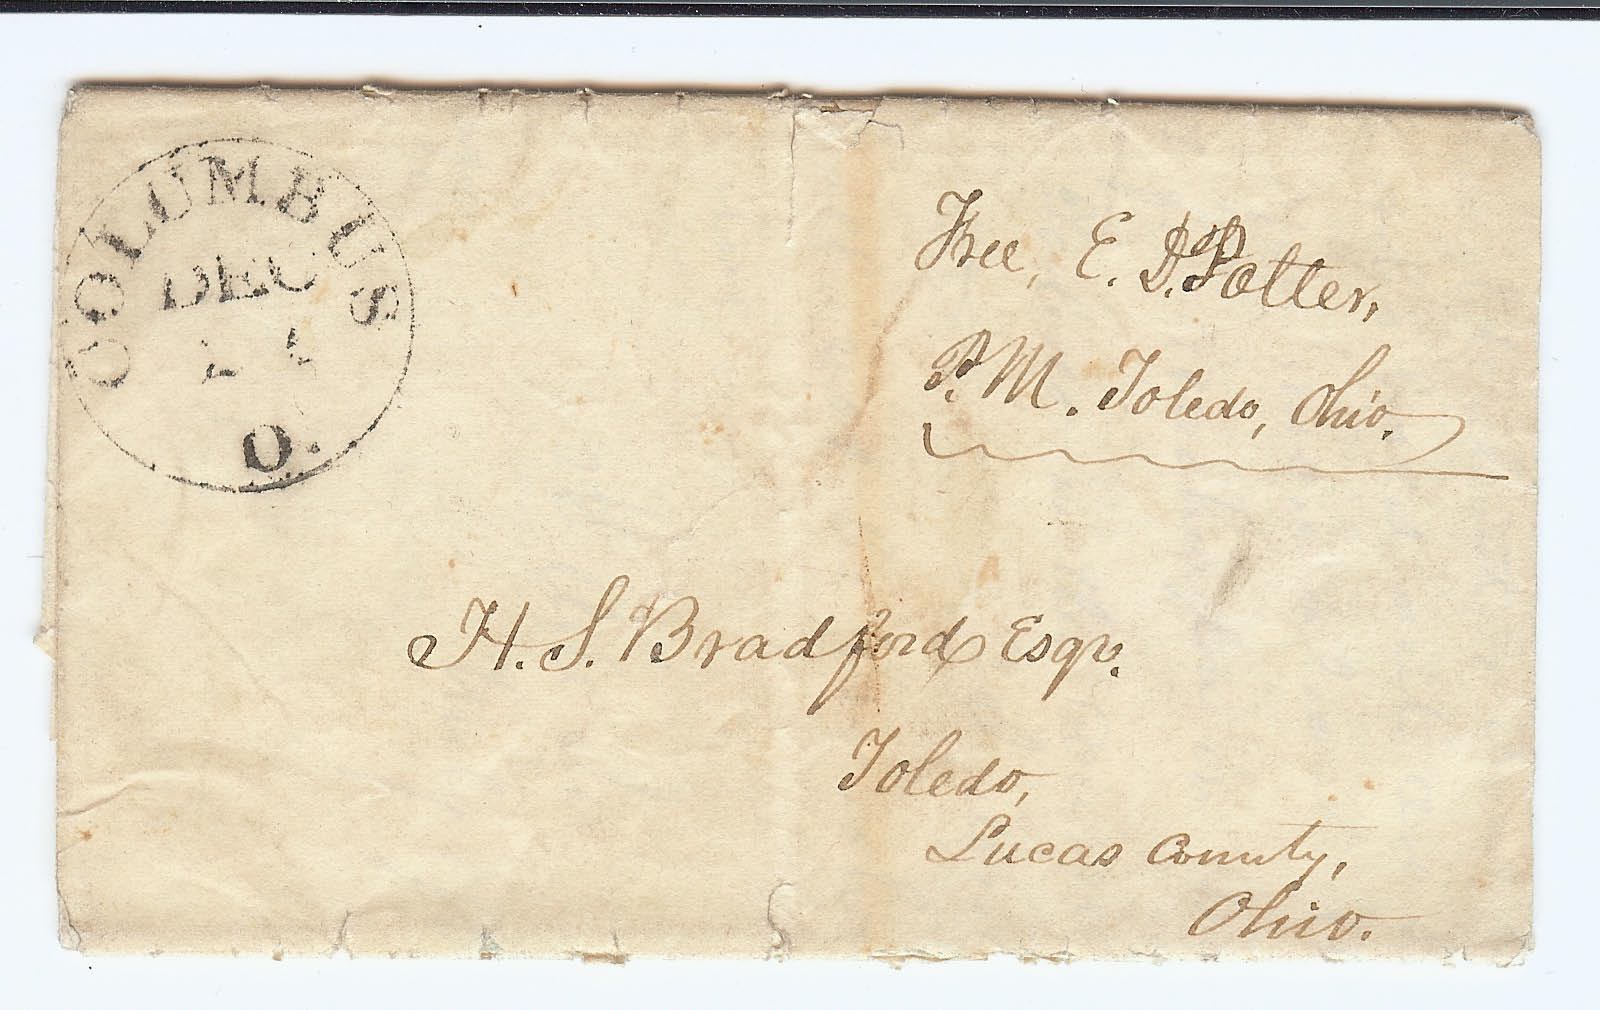 COLUMBUS
DEC
O.
Free, E. D. Potter,
P. M. Toledo, Ohio.
H. S. Bradford Esqr.
Toledo,
Lucas County,
Ohio.